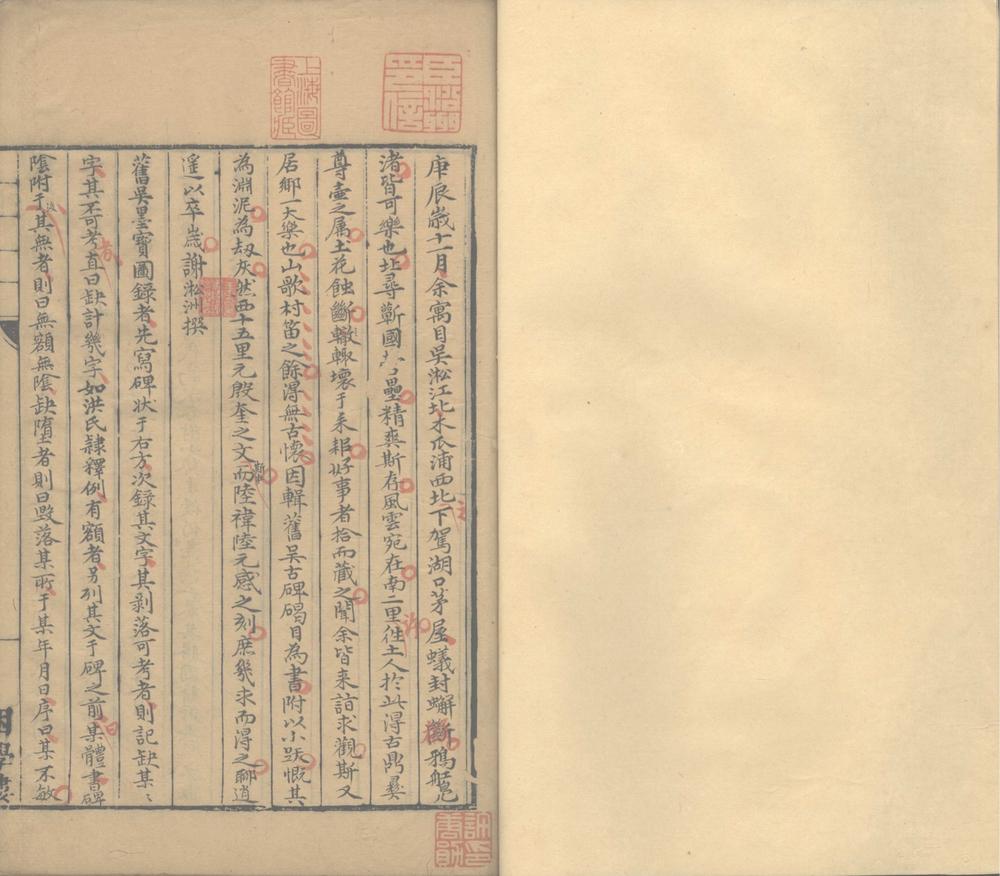 庚辰歲十一月余寓目吳淞江北木瓜浦西北下駕湖口茅屋蟻封蠏斷鴉艇鳧
渚皆可樂也北尋蘄國壘精爽斯存風雲宛在南二里徃土人於此得古鼎彞
尊壷之属土花蝕斷轍輙壊于耒耜好事者拾而藏之聞余皆来詣求觀斯又
居鄉一大樂也山歌村笛之餘得無古懐因輯舊吳古碑碣目為書附以小跋慨其
為淵泥為刼灰然西十五里元殷奎之文而陸禕陸元感之刻庶幾求而得之聊逍
遥以卒歲謝淞洲撰
舊吳墨寶圖録者先寫碑状于右方次録其文字其剥落可考者則記缺某〻
字其不可考直曰缺計幾字如洪氏隷釋例有額者另列其文于碑之前某體書碑
陰附于其無者則曰無額無陰缺墮者則曰毀落某所于某年月日序曰某不敏
上海圖書館臧